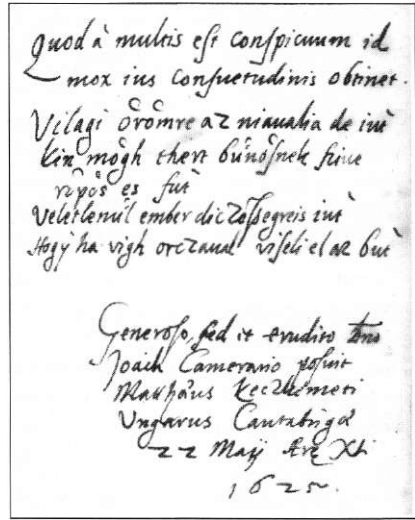 Quod à multis est conspicuum id
mox ius consuetudinis obtinet.
Vilagi örömre az niavalia de iut
kin mögh thert bünösnek sziue
es fut
Veletlenül ember diczössegreis iut
Hogy ha vigh orczaual viseli el az but
Generoso, sed et erudito Dno
Joach Camerario posuit
Matthäus Keczkemeti
Ungarus Cantabrigæ
22 Maij Aræ Xti
1625.